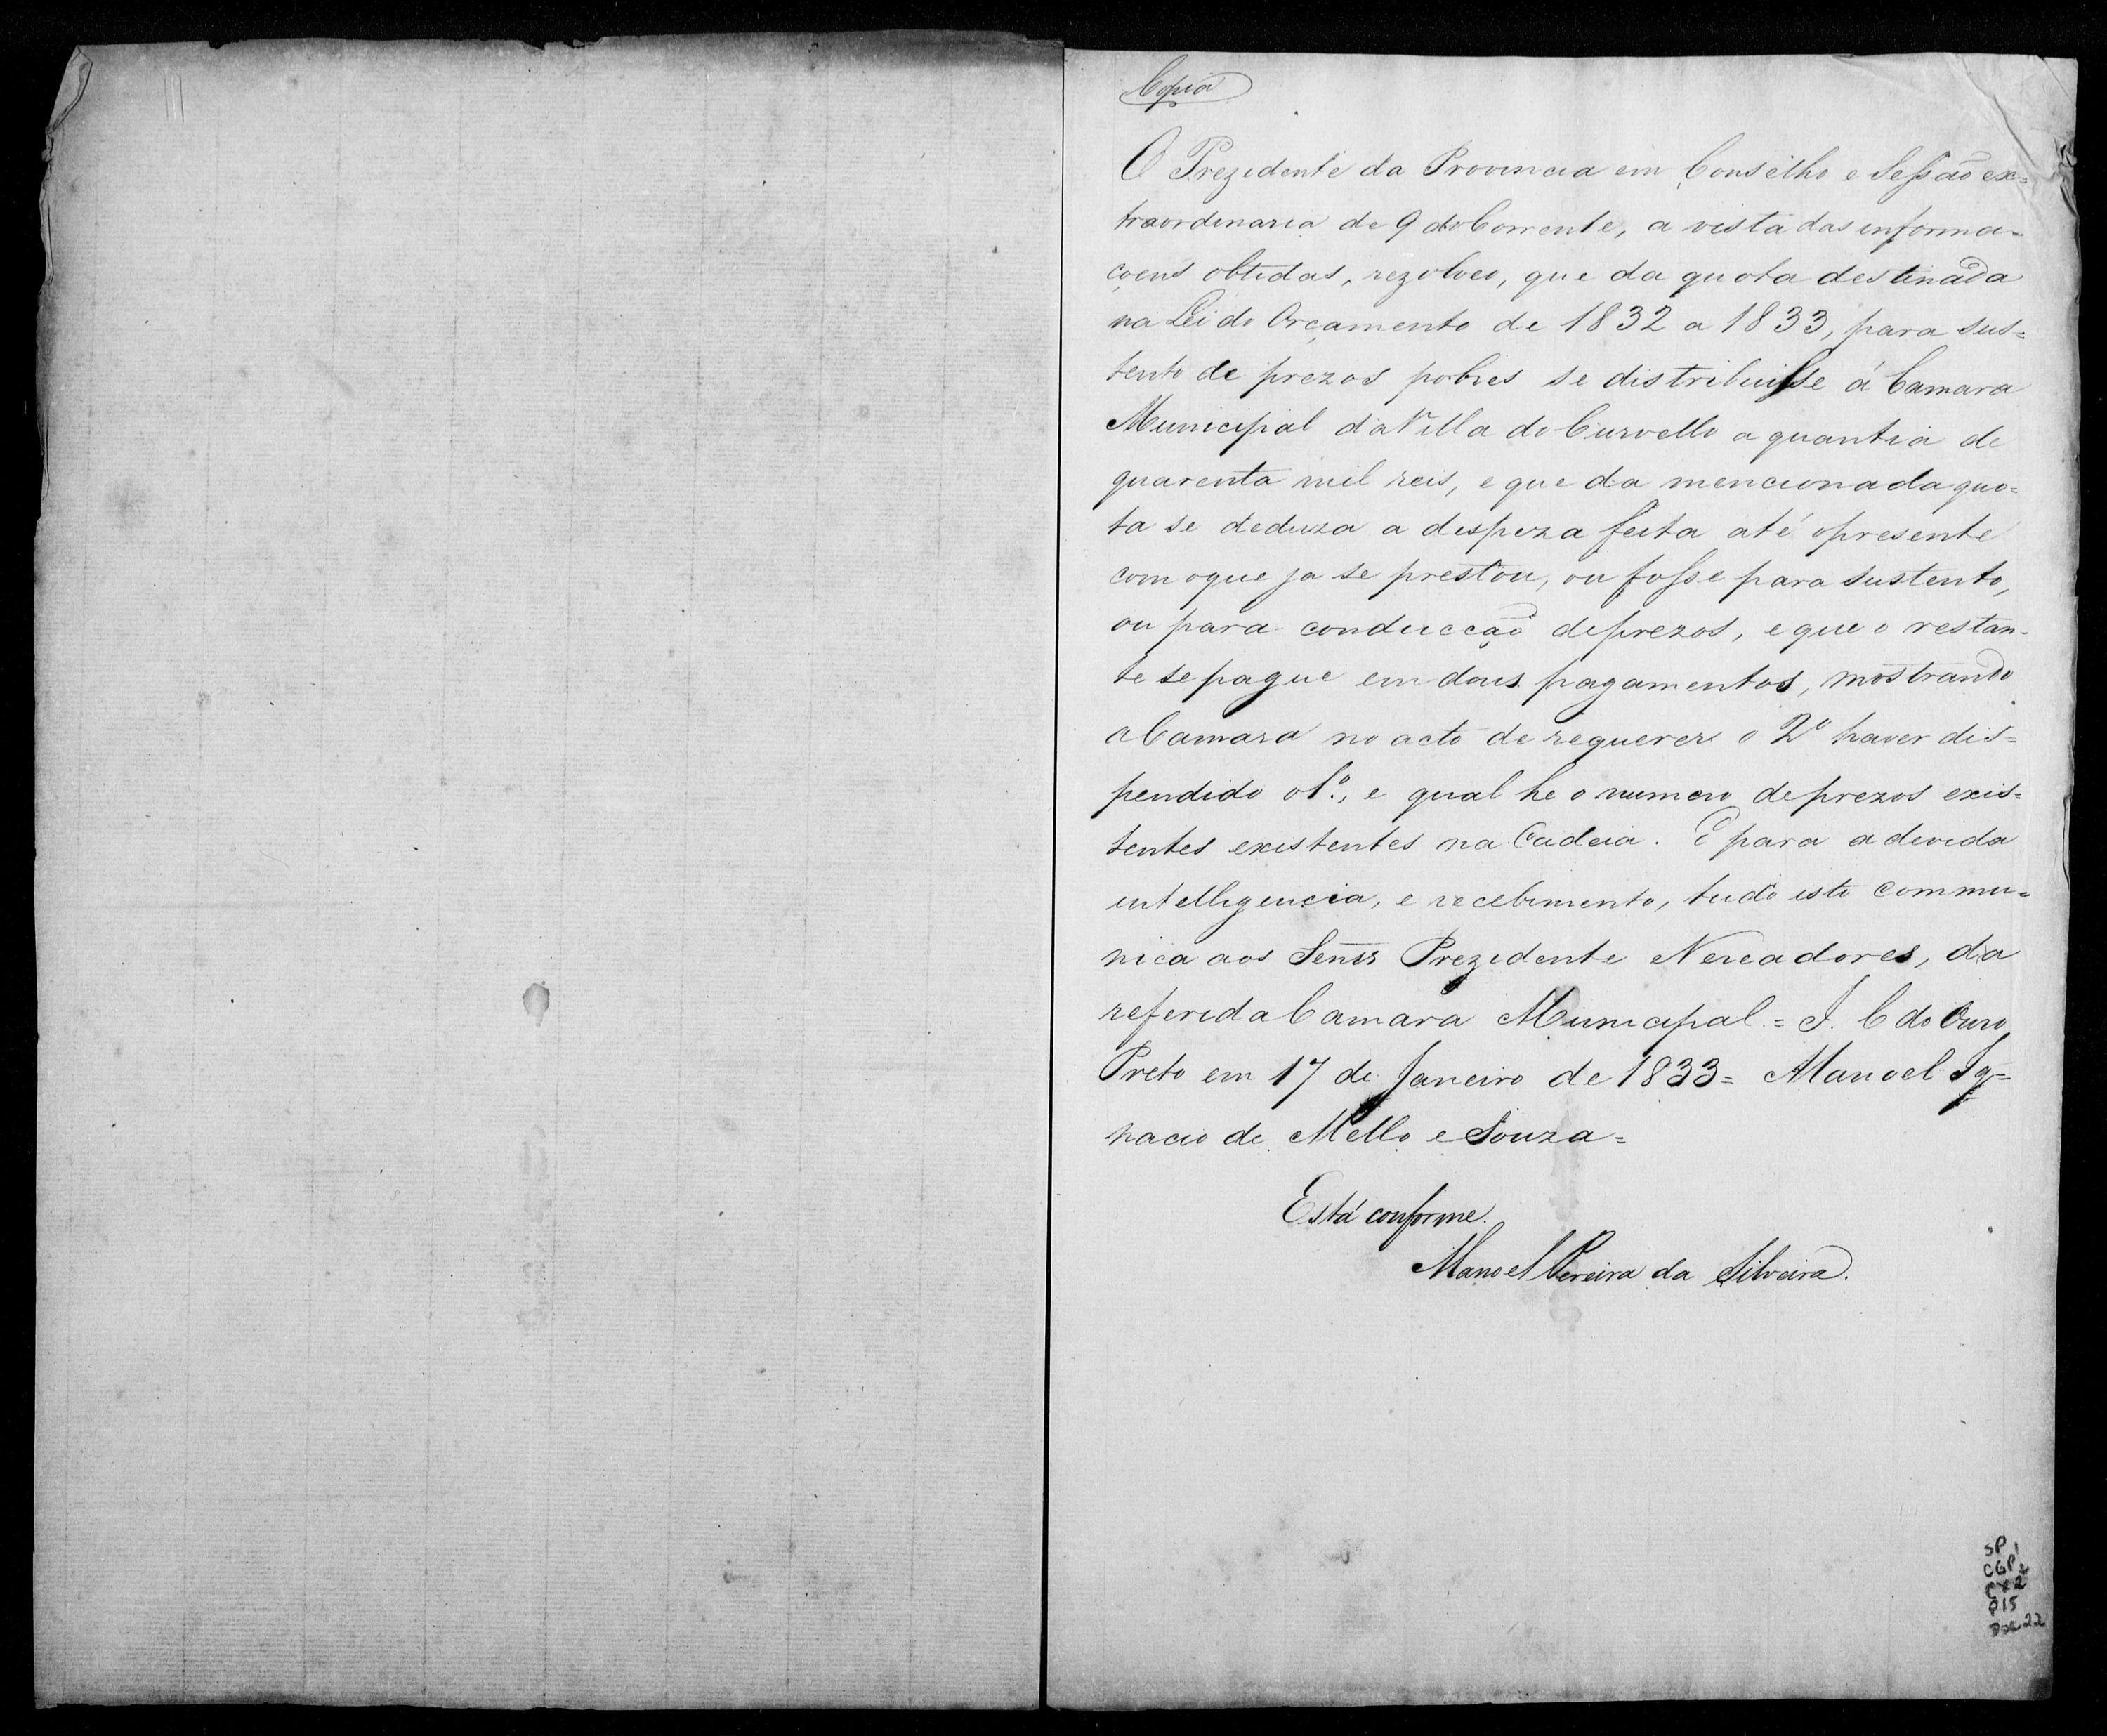 Copia
O Prezidente da Provincia em Conselho e Sessão ex=
traordinaria de 9 do Corrente, a vista das informa=
çoens obtidas, rezolveo, que da quota destinada
na Lei do Orçamento de 1832 a 1833, para sus=
tento de prezos pobres se distribuisse á Camara
Municipal da Villa do Curvello a quantia de
quarenta mil reis, e que da mencionada quo=
ta se deduza a despeza feita até o presente
com o que ja se prestou, ou fosse para sustento,
ou para conducção de prezos, e que o restan=
te se pague em dous pagamentos, mostrando
a Camara no acto de requerer o 2º haver dis=
pendido o 1º, e qual he o numero de prezos exis=
tentes existentes na Cadeia. E para a devida
intelligencia, e recebimento, tudo isto commu=
nica aos Senrs Prezidente e Vereadores, da
referida Camara Municipal. = I. C do Ouro
Preto em 17 de Janeiro de 1833 = Manoel Ig=
nacio de Mello e Souza =
Está conforme.
Manoel Pereira da Silveira.
SP
CGP1
CX2
P15
Doc 22